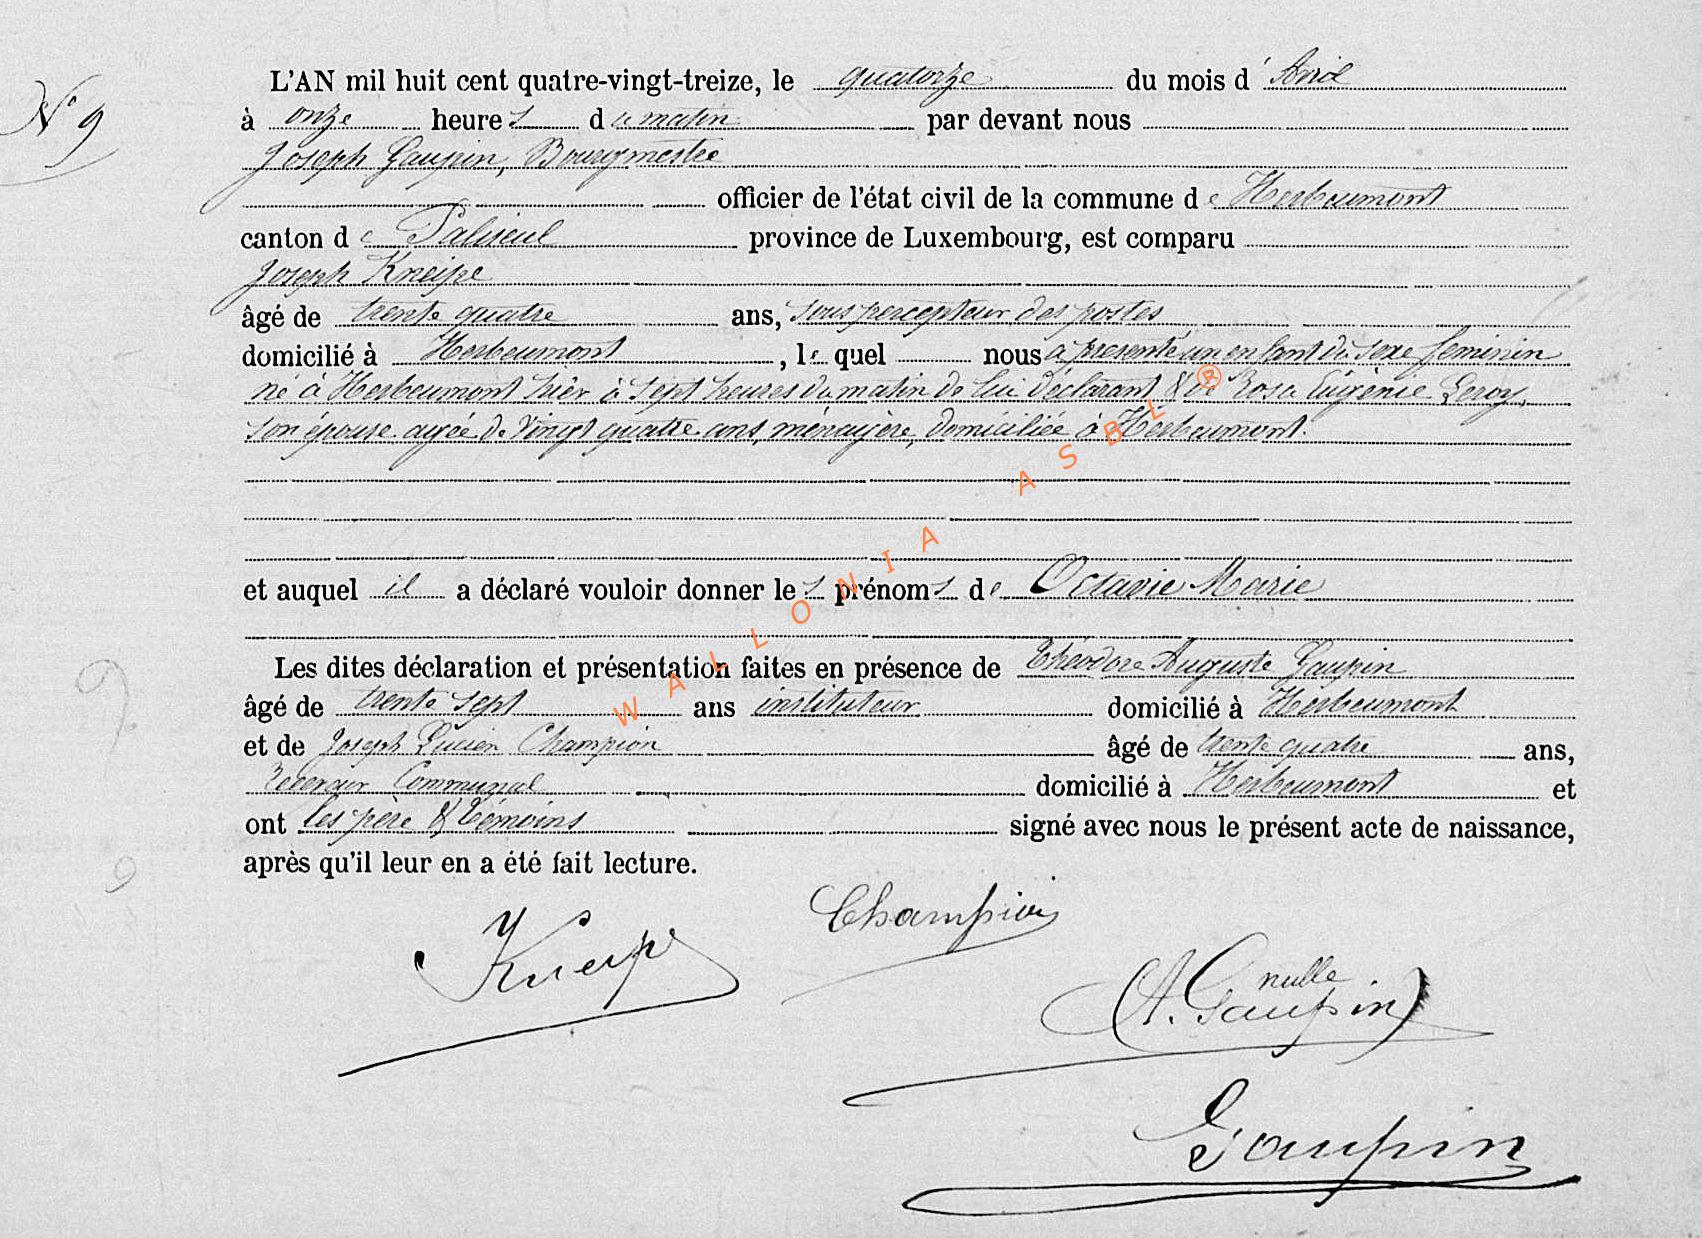 N° 9
L'AN mil huit cent quatre-vingt-treize, le quatorze du mois d' Avril
à onze heures du matin par devant nous
Joseph Gaupin, Bourgmestre
officier de l'état civil de la commune de Herbeumont
canton de Paliseul province de Luxembourg, est comparu
Joseph Kneipe
âgé de trente quatre ans, sous percepteur des postes
domicilié à Herbeumont, lequel nous a présenté un enfant du sexe féminin
né à Herbeumont hier à sept heures du matin de lui déclarant & de Rosa Eugénie Leroy,
son épouse agée de vingt quatre ans, ménagère, domiciliée à Herbeumont.
et auquel il a déclaré vouloir donner les prénoms de Octavie Marie
Les dites déclaration et présentation faites en présence de Théodore Auguste Gaupin
âgé de trente sept ans instituteur domicilié à Herbeumont
et de Joseph Lucien Champion âgé de trente quatre ans,
receveur Communal domicilié à Herbeumont et
ont les père & témoins signé avec nous le présent acte de naissance,
après qu'il leur en a été fait lecture.
Champion
Kneip
nulle
(A. Gaupin)
Gaupin
9
9
WALLONIA ASBL ®